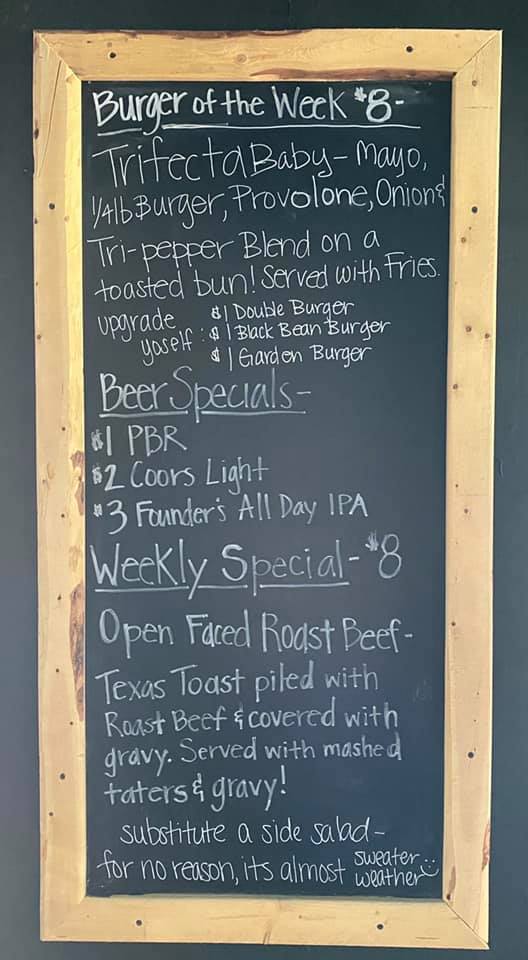 Burger of the Week $8-
Trifecta Baby - Mayo,
1/4lb Burger, Provolone, Onion &
Tri-pepper Blend on a
toasted bun! Served with Fries.
upgrade yoself: $1 Double Burger
$1 Black Bean Burger
$1 Garden Burger
Beer Specials-
$1 PBR
$2 Coors Light
$3 Founder's All Day IPA
Weekly Special - $8
Open Faced Roast Beef-
Texas Toast piled with
Roast Beef & covered with
gravy. Served with mashed
taters & gravy!
substitute a side salad-
for no reason, its almost sweater weather :)